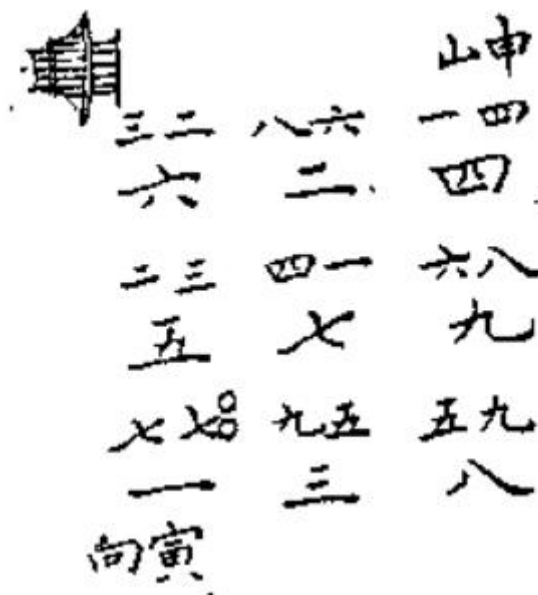 山申
三二 八六 一四
六 二 四
二三 四一 六八
五 七 九
七七 九五 五九
一 三 八
向寅